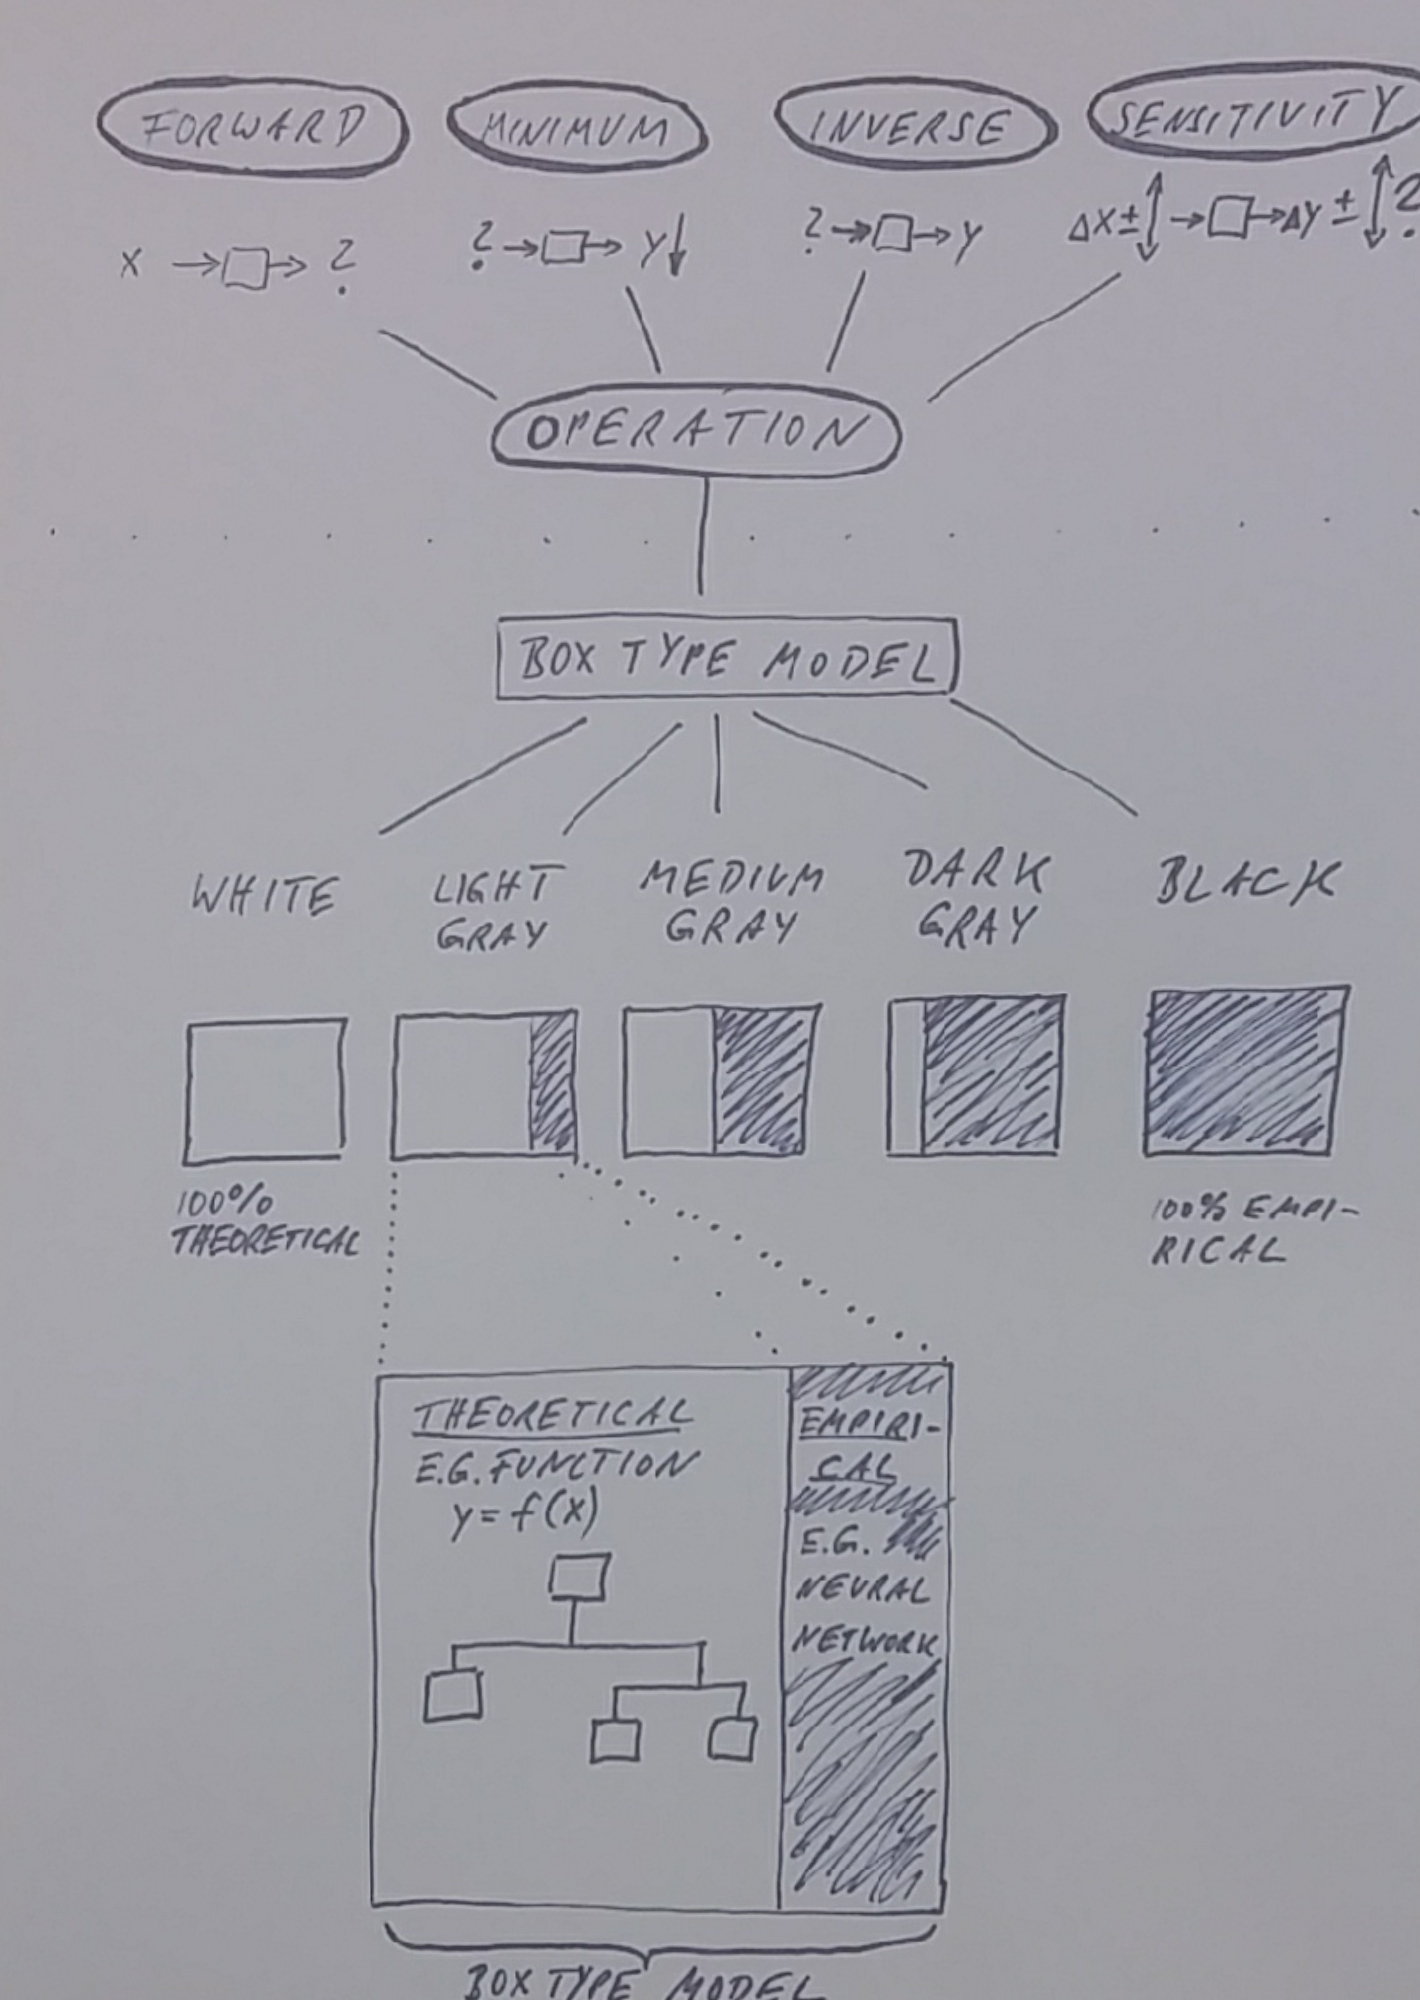 FORWARD MINIMUM INVERSE SENSITIVITY
X → □ → ?
? → □ → Y↓
? → □ → Y
ΔX ± ↕ → □ → ΔY ± ↕ ?
OPERATION
BOX TYPE MODEL
WHITE
LIGHT
GRAY
MEDIUM
GRAY
DARK
GRAY
BLACK
100%
THEORETICAL
100% EMPI-
RICAL
THEORETICAL
E.G. FUNCTION
y = f(x)
EMPIRI-
CAL
E.G.
NEURAL
NETWORK
BOX TYPE MODEL